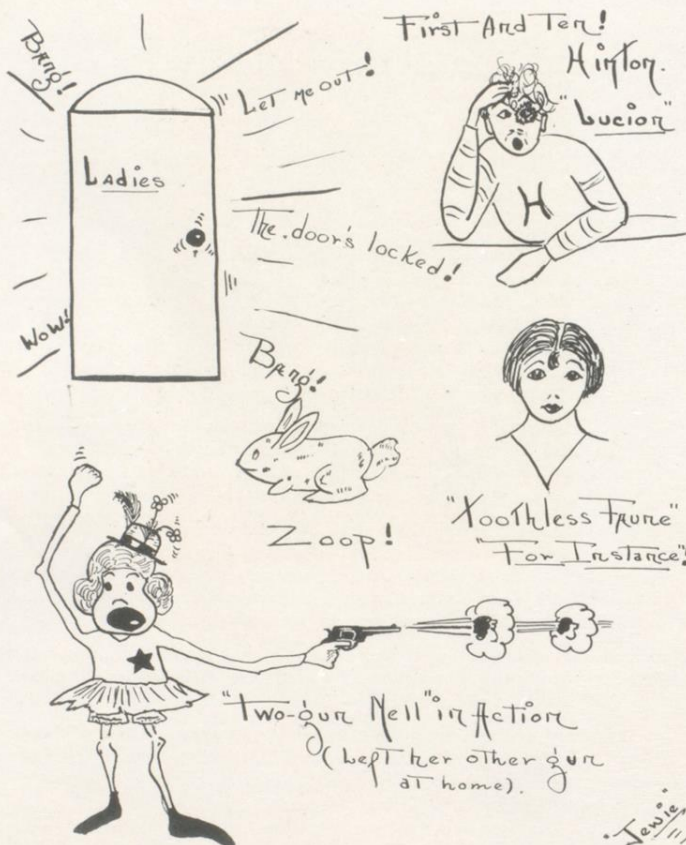 Bang!
Let me out!
Ladies
The door's locked!
Wow!
First And Ten!
Hinton.
"Lucion"
H
Bang!
Zoop!
"Toothless Faune"
"For Instance"!
"Two-gun Nell" in Action
(Left her other gun
at home).
"Jewie"